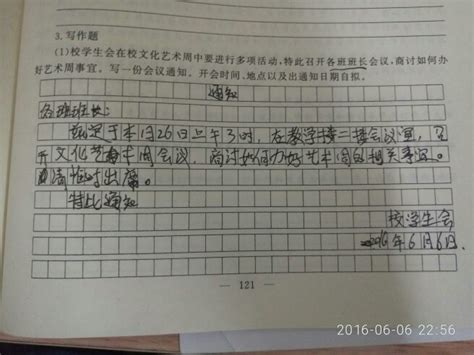 3. 写作题
(1)校学生会在校文化艺术周中要进行多项活动,特此召开各班班长会议,商讨如何办
好艺术周事宜。写一份会议通知。开会时间、地点以及出通知日期自拟。
通知
各班班长:
拟定于本月26日上午3时,在教学楼二楼会议室,召
开文化艺术周会议,商讨如何办好艺术周的相关事宜。
请准时出席。
特此通知
校学生会
2016年6月6日
121
2016-06-06 22:56